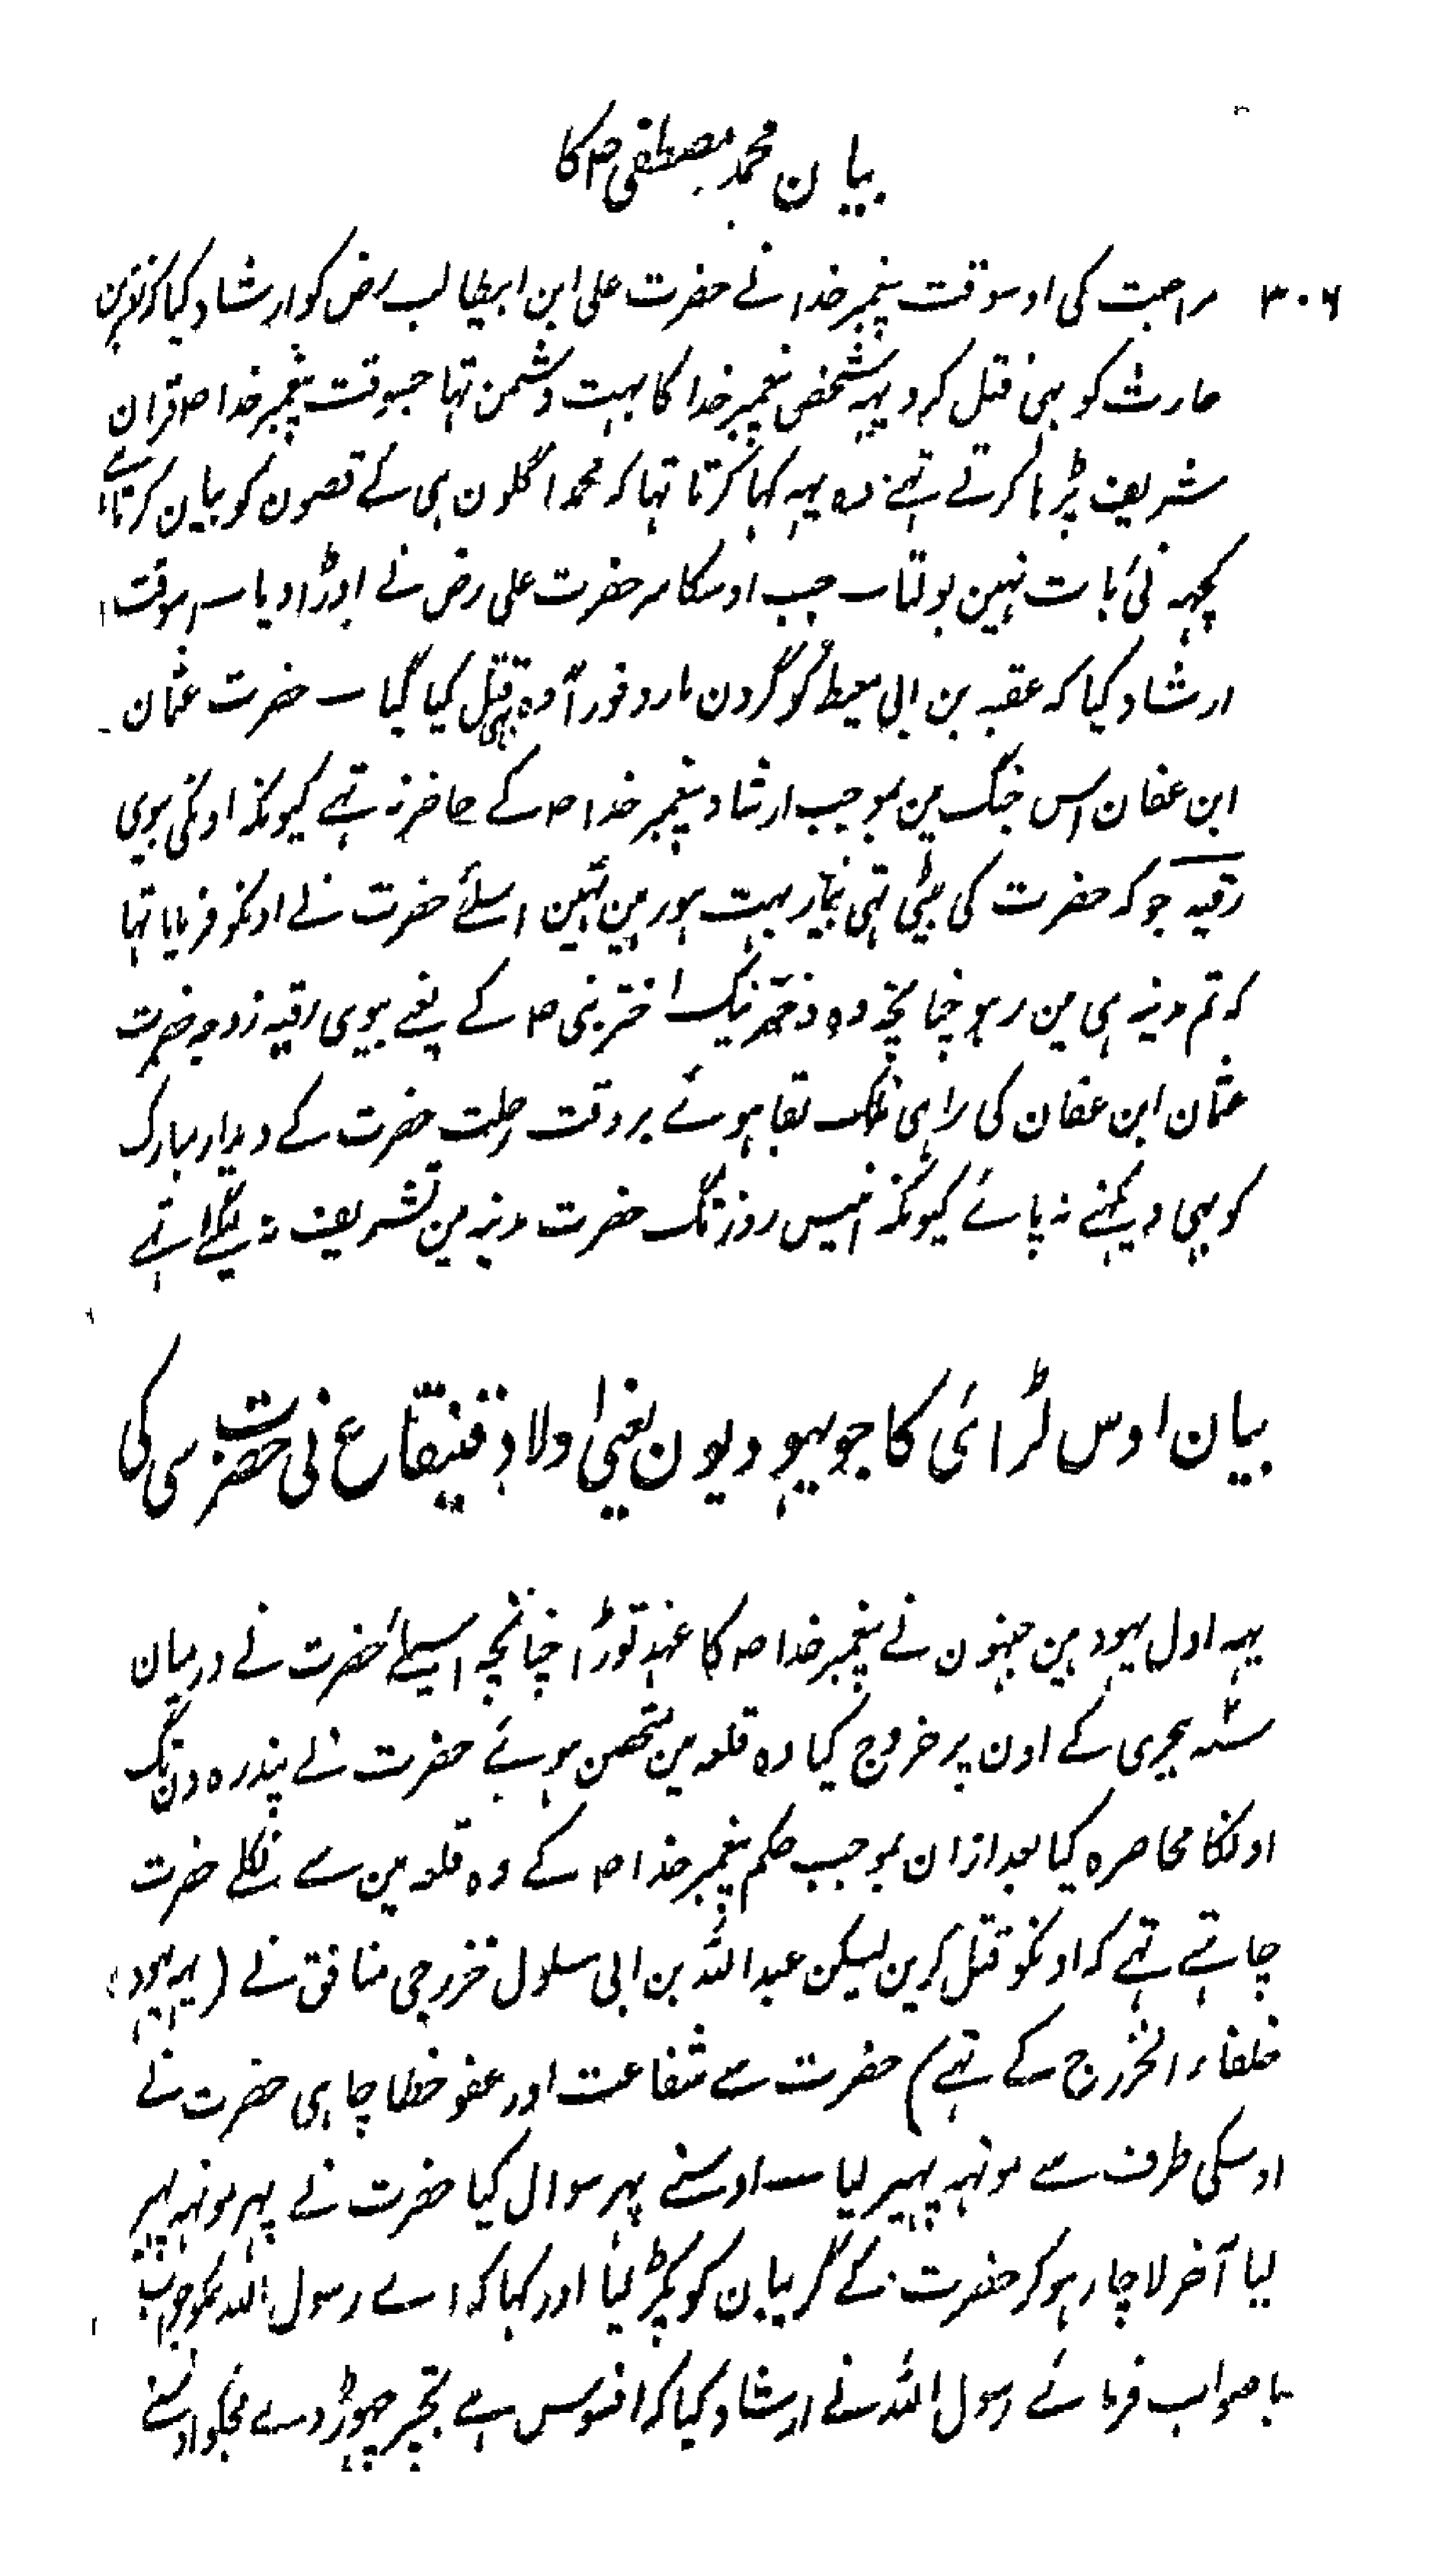 بیان محمد مصطفی ص کا
۳۰۶ مراجعت کی اوسوقت پیغمبر خدا نے حضرت علی ابن ابیطالب رض کو ارشاد کیا کہ نضر بن
حارث کو بہی قتل کرو یہہ شخص پیغمبر خدا کا بہت دشمن تہا جسوقت پیغمبر خدا ص قران
شریف پڑہا کرتے تہے وہ یہہ کہا کرتا تہا کہ محمد اگلون ہی کے قصون کو بیان کرتا ہے
کچہہ نئی بات نہین بولتا ۔ جب اوسکا سر حضرت علی رض نے اوڑا دیا ۔ اسوقت
ارشاد کیا کہ عقبہ بن ابی معیط کو گردن مارو فوراً وہ بہی قتل کیا گیا ۔ حضرت عثمان
ابن عفان اس جنگ مین بموجب ارشاد پیغمبر خدا ص کے حاضر نہ تہے کیونکہ اونکی بیوی
رقیہ جو کہ حضرت کی بیٹی تہی بیمار بہت ہو رہین تہین اسلئے حضرت نے اونکو فرمایا تہا
کہ تم مدینہ ہی مین رہو چنانچہ وہ دختر نیک اختر نبی ص کے یعنے بیوی رقیہ زوجہ حضرت
عثمان ابن عفان کی راہی ملک بقا ہوئے بر وقت رحلت حضرت کے دیدار مبارک
کو بہی دیکہنے نہ پائے کیونکہ انیس روز تک حضرت مدینہ مین تشریف نہ لیگئے تہے
بیان اوس لڑائی کا جو یہودیون یعنی اولاد قینقاع نی حضرت سی کی
یہہ اول یہود ہین جنہون نے پیغمبر خدا ص کا عہد توڑا چنانچہ اسیلئے حضرت نے درمیان
سنہ ۲ ہجری کے اون پر خروج کیا وہ قلعہ مین متحصن ہوئے حضرت نے پندرہ دن تک
اونکا محاصرہ کیا بعد ازان بموجب حکم پیغمبر خدا ص کے وہ قلعہ مین سے نکلے حضرت
چاہتے تہے کہ اونکو قتل کرین لیکن عبد اللہ بن ابی سلول خزرجی منافق نے (یہہ یہود
خلفاء الخزرج کے تہے) حضرت سے شفاعت اور عفو خطا چاہی حضرت نے
اوسکی طرف سے مونہہ پہیر لیا ۔ اوسنے پہر سوال کیا حضرت نے پہر مونہہ پہیر
لیا آخر لاچار ہو کر حضرت کے گریبان کو پکڑ لیا اور کہا کہ اے رسول اللہ مجکو جواب
با صواب فرمائے رسول اللہ نے ارشاد کیا کہ افسوس ہے تجہپر چہوڑ دے مجکو اوسنے